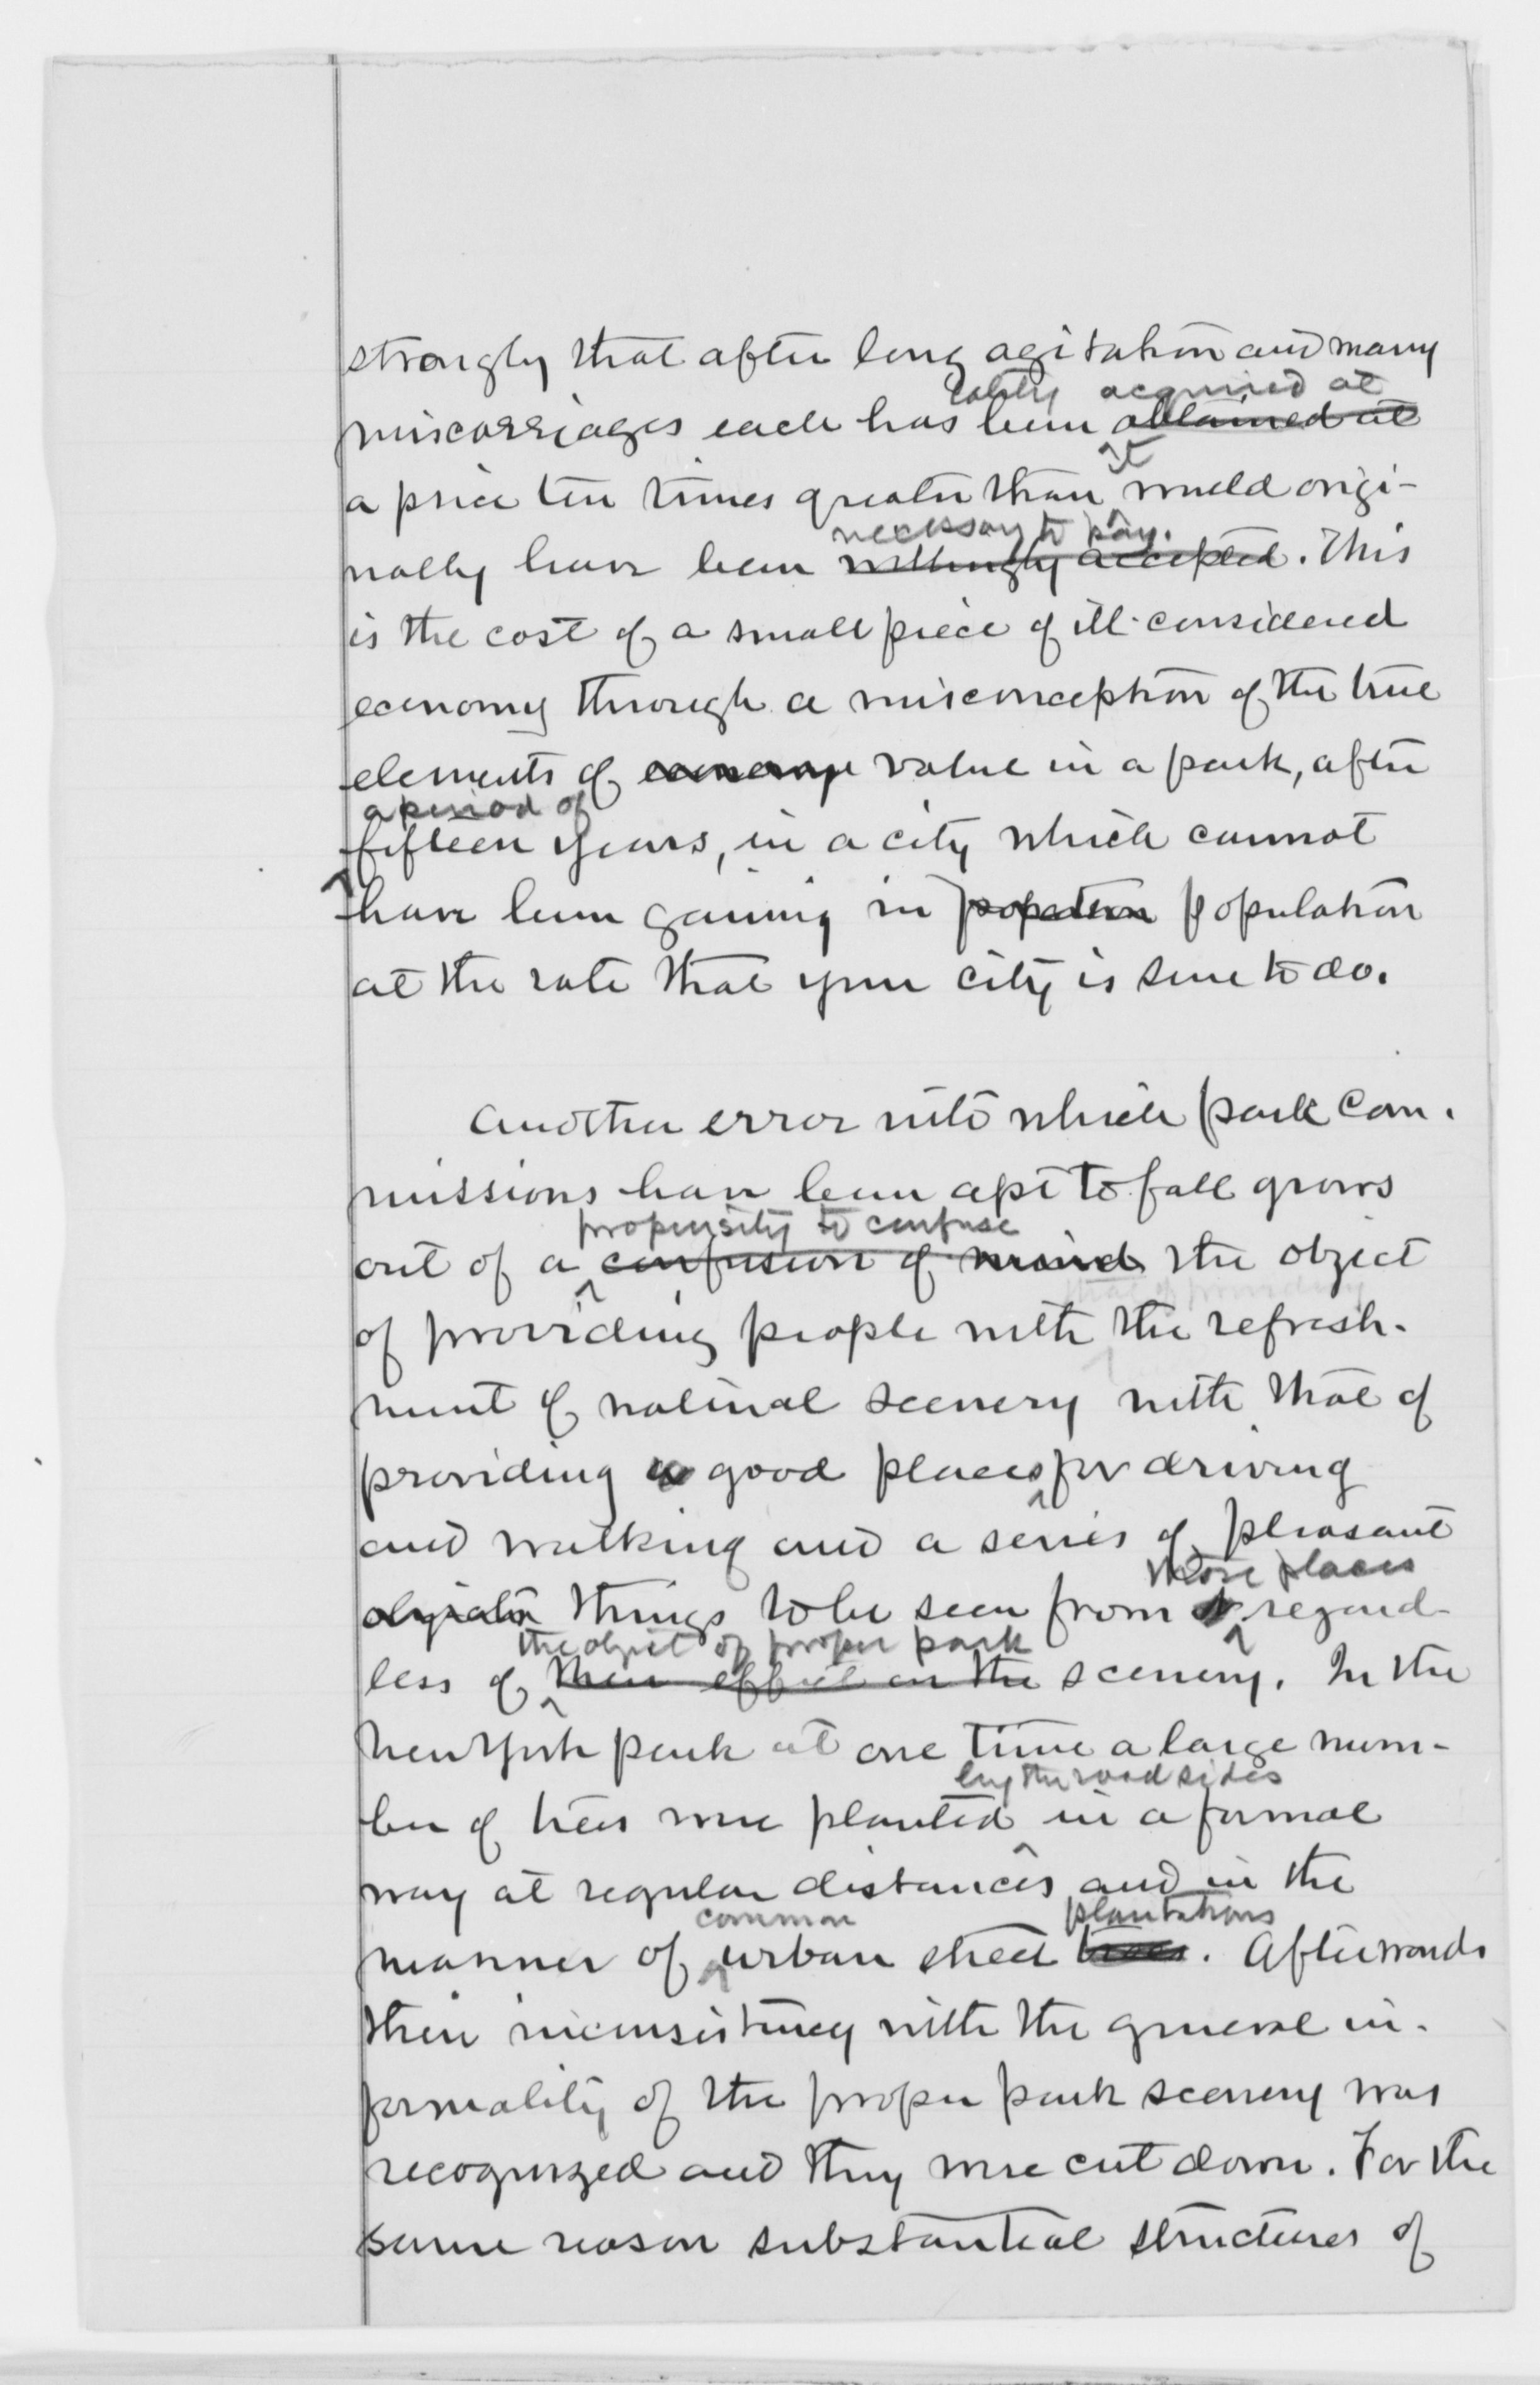 strongly that after long agitation and many
lately acquired at
miscarriages each has been obtained at
it
a price ten times greater than would origi-
necessary to pay.
nally have been willingly accepted. This
is the cost of a small piece of ill-considered
economy through a misconception of the true
elements of economy value in a park, after
a period of
fifteen years, in a city which cannot
have been gaining in population
at the rate that your city is sure to do.
Another error into which park com-
missions have been apt to fall grows
propensity to confuse
out of a confusion of mind the object
that of providing
of providing people with the refresh-
ment of natural scenery with that of
providing a good places for driving
and walking and a series of pleasant
those places
objects things to be seen from regard-
the object of proper park
less of their effect on the scenery. In the
New York park at one time a large num-
by the road sides
ber of trees were planted in a formal
way at regular distances and in the
common plantations
manner of urban street trees. Afterwards
their inconsistency with the general in-
formality of the proper park scenery was
recognized and they were cut down. For the
same reason substantial structures of